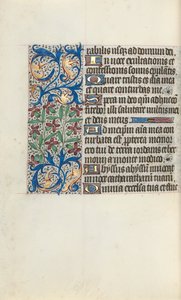 rabilis usq; ad domum dei.
In voce exultationis et
confessionis sonus epulantis
Quare tristis es anima mea
et quare conturbas me.
Spera in deo qm adhuc
illi salutare vultus mei
et deus meus
Ad meipm aīa mea con
turbata est propterea memor
ero tui de terra iordanis et her
monij a monte modico
Abyssus abyssum invocat
in voce cataractarum tuarū
Omnia excelsa tua et fluc